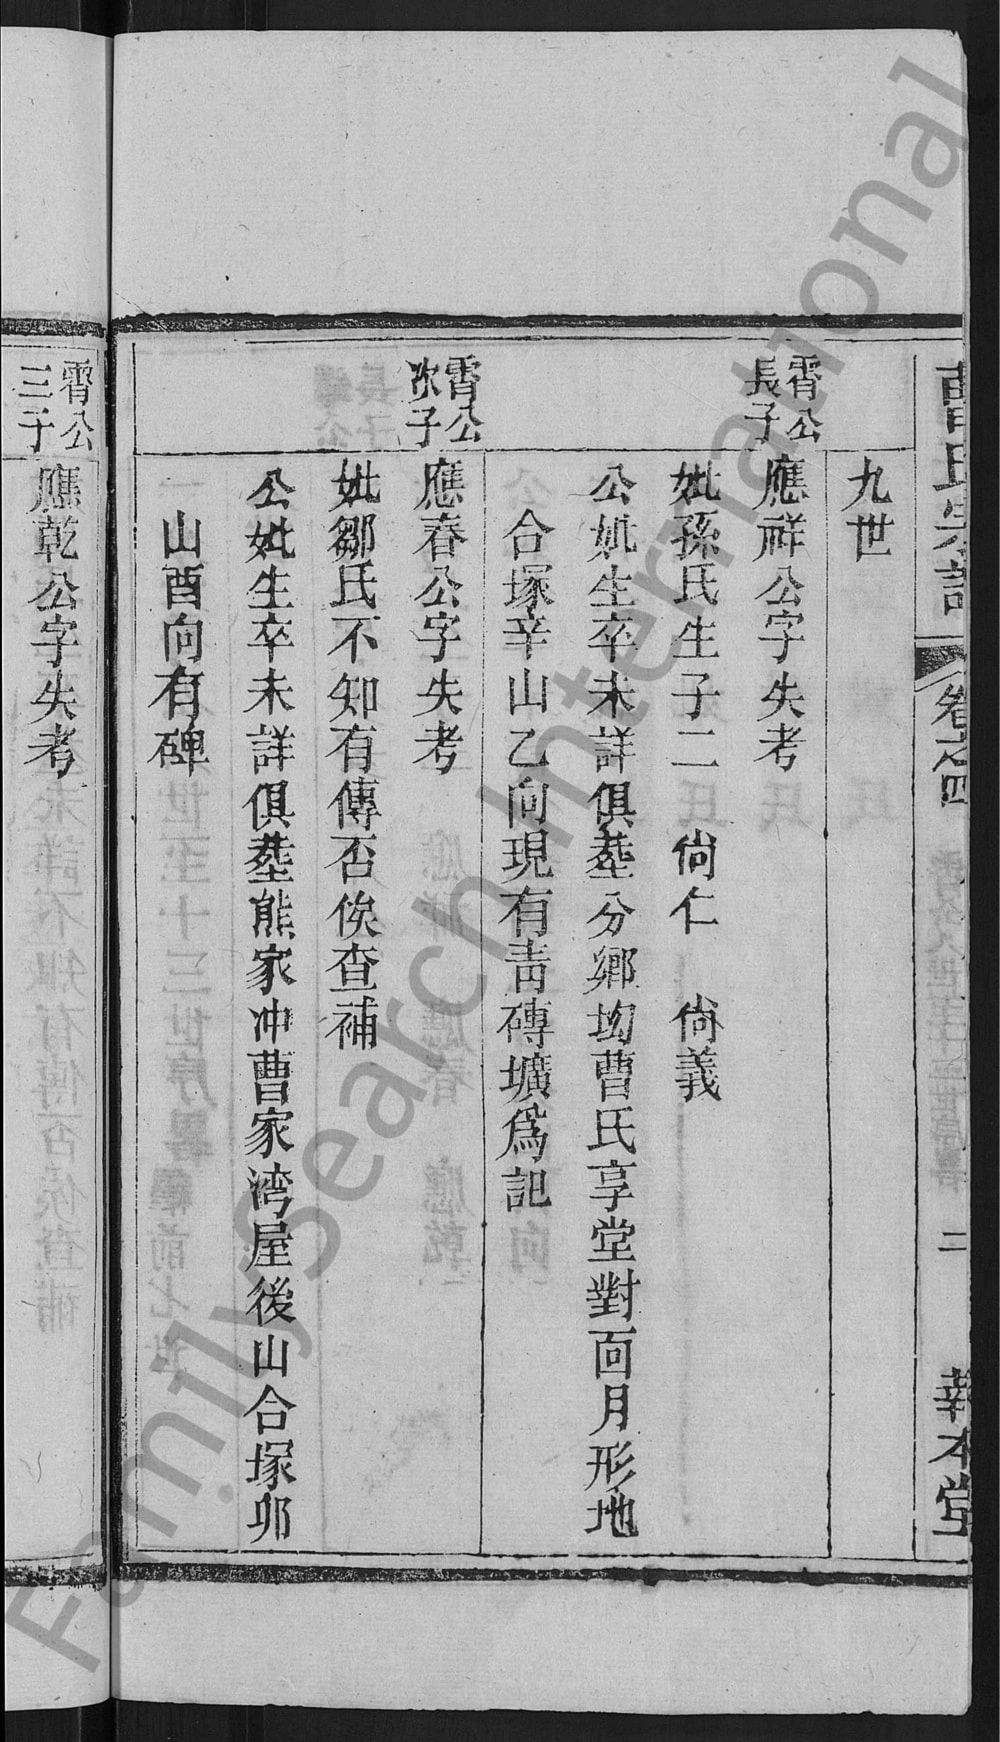 曹氏宗譜 卷之四 二 報本堂
九世
霄公長子
應祥公字失考
妣孫氏生子二 尙仁 尙義
公妣生卒未詳俱塟分鄉坳曹氏享堂對面月形地
合塚辛山乙向現有靑磚壙爲記
霄公次子
應春公字失考
妣鄒氏不知有傳否俟查補
公妣生卒未詳俱塟熊家冲曹家湾屋後山合塚卯
山酉向有碑
霄公三子
應乾公字失考
FamilySearch International